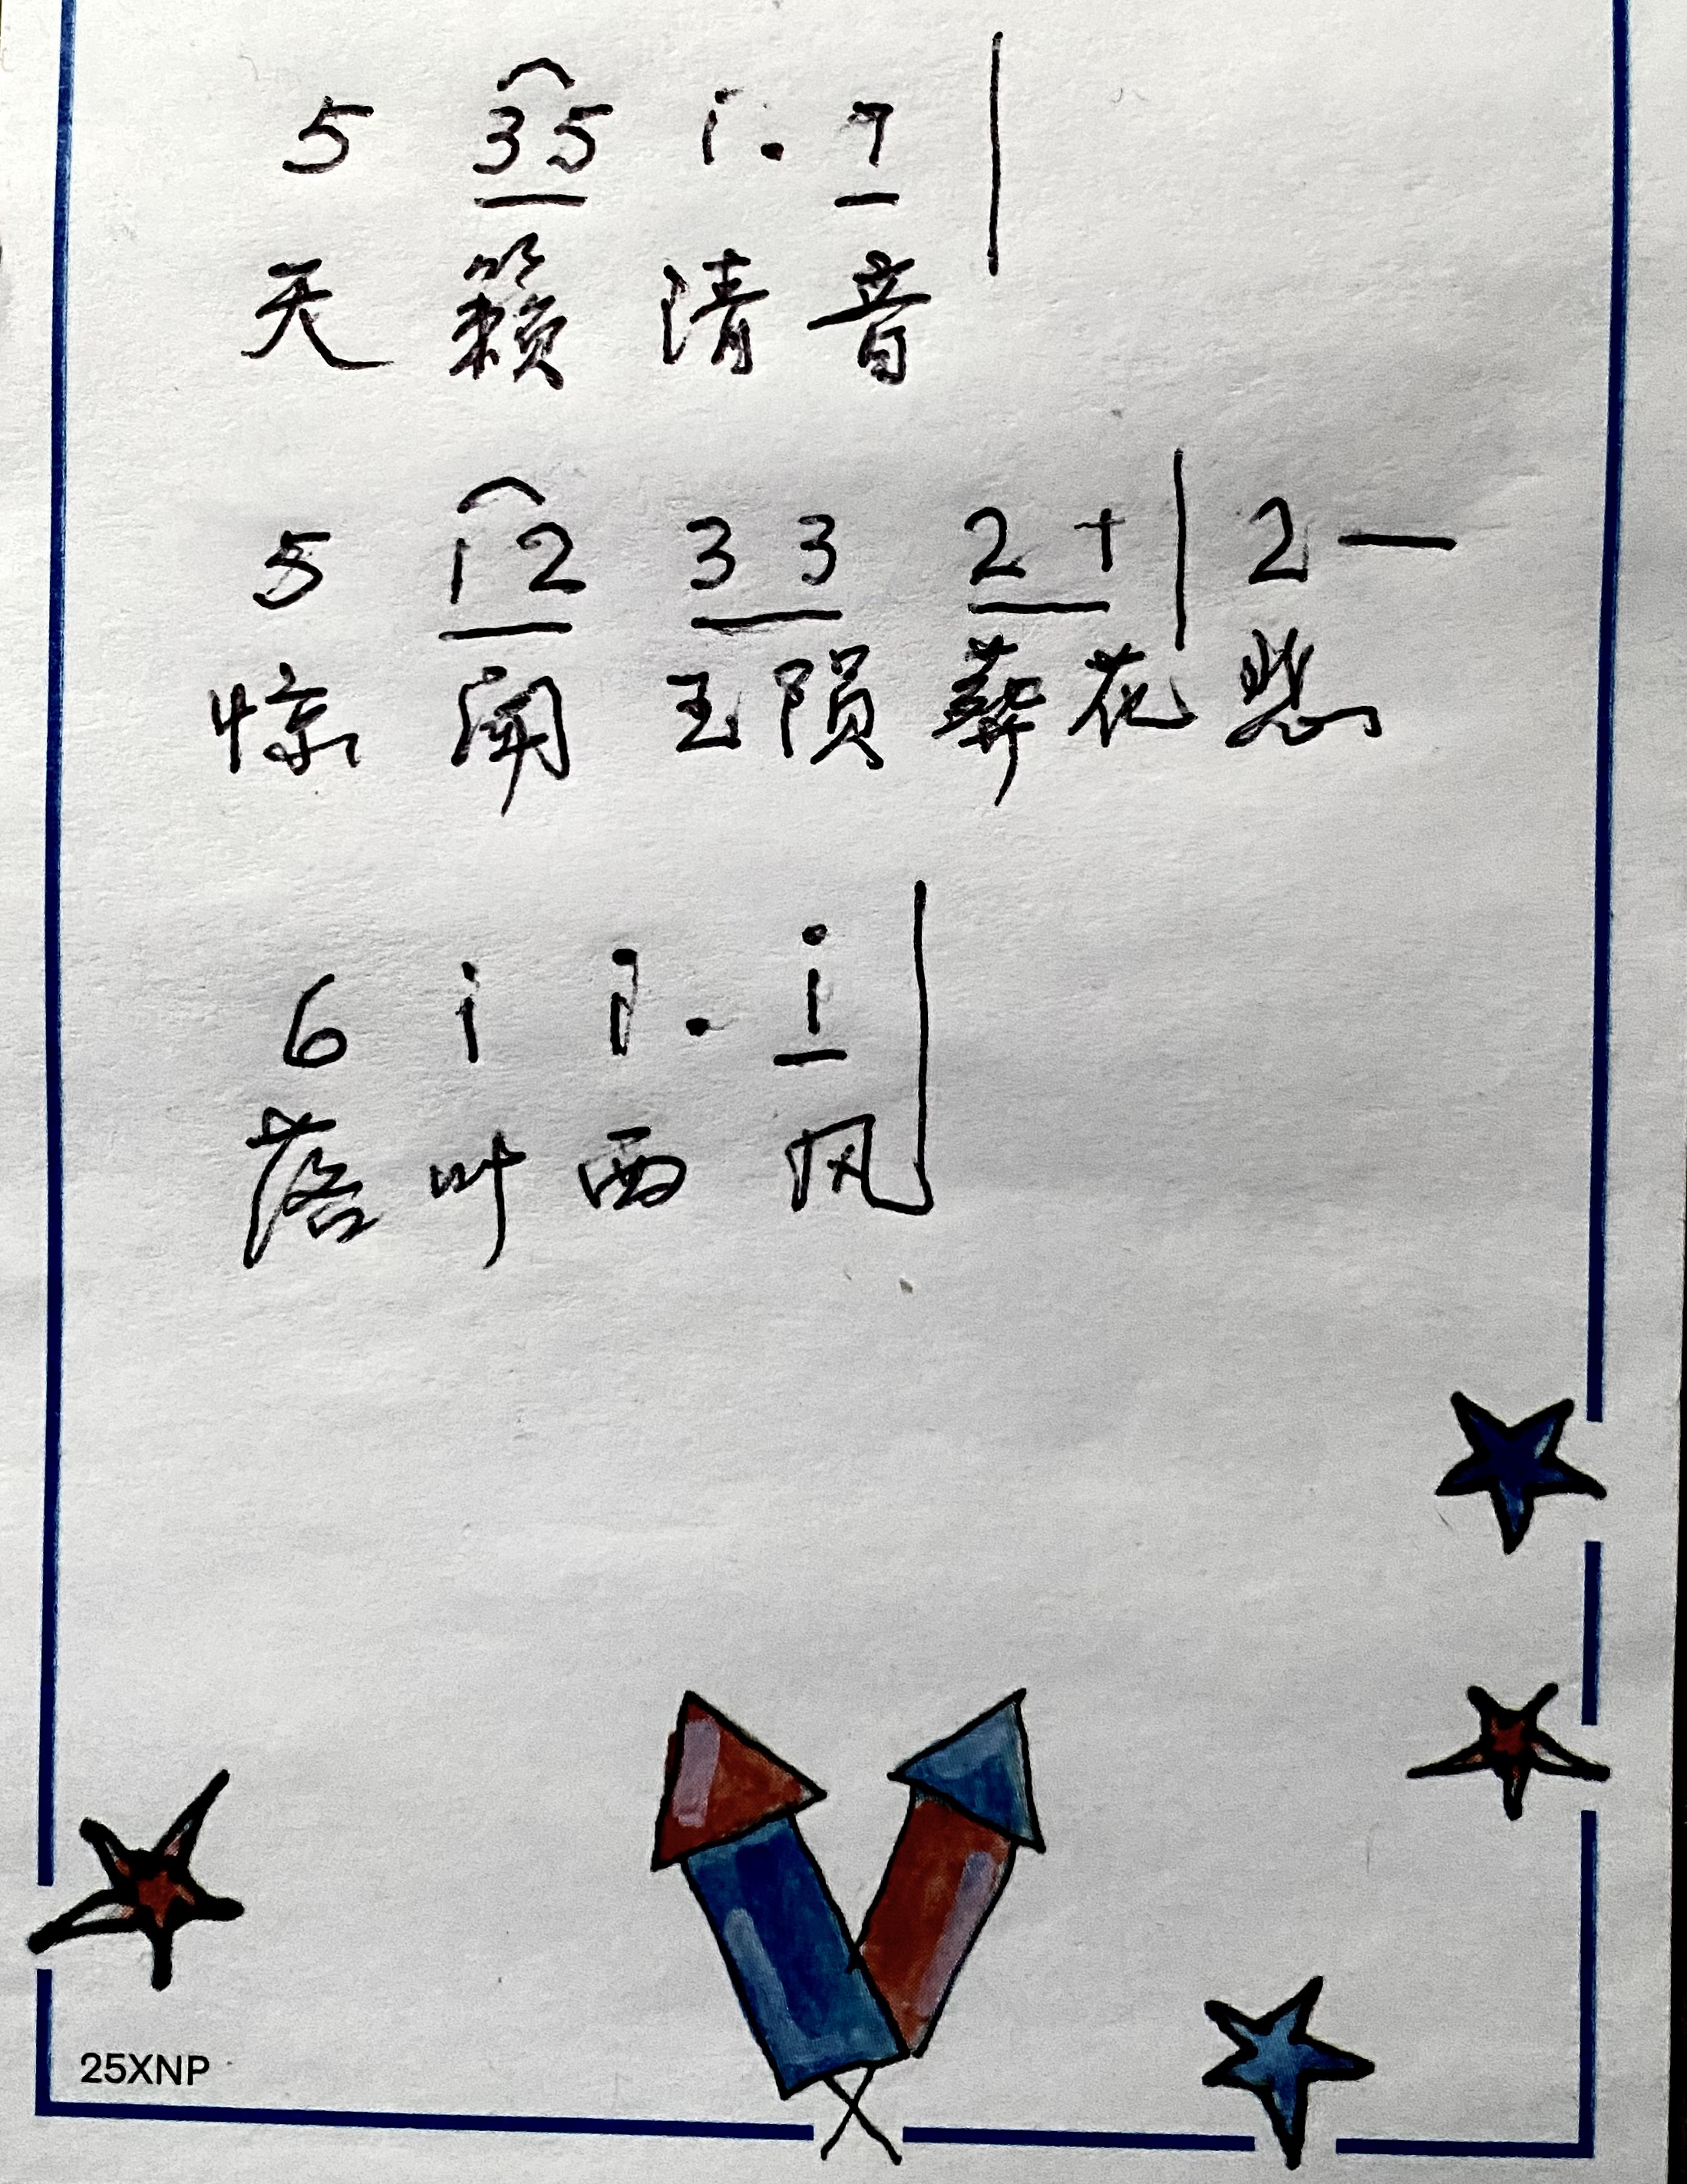 5 35 i. 7 |
天籁清音
5 i2 33 2† | 2 —
惊闻玉陨葬花悲
6 i i. i |
落叶西风
25XNP